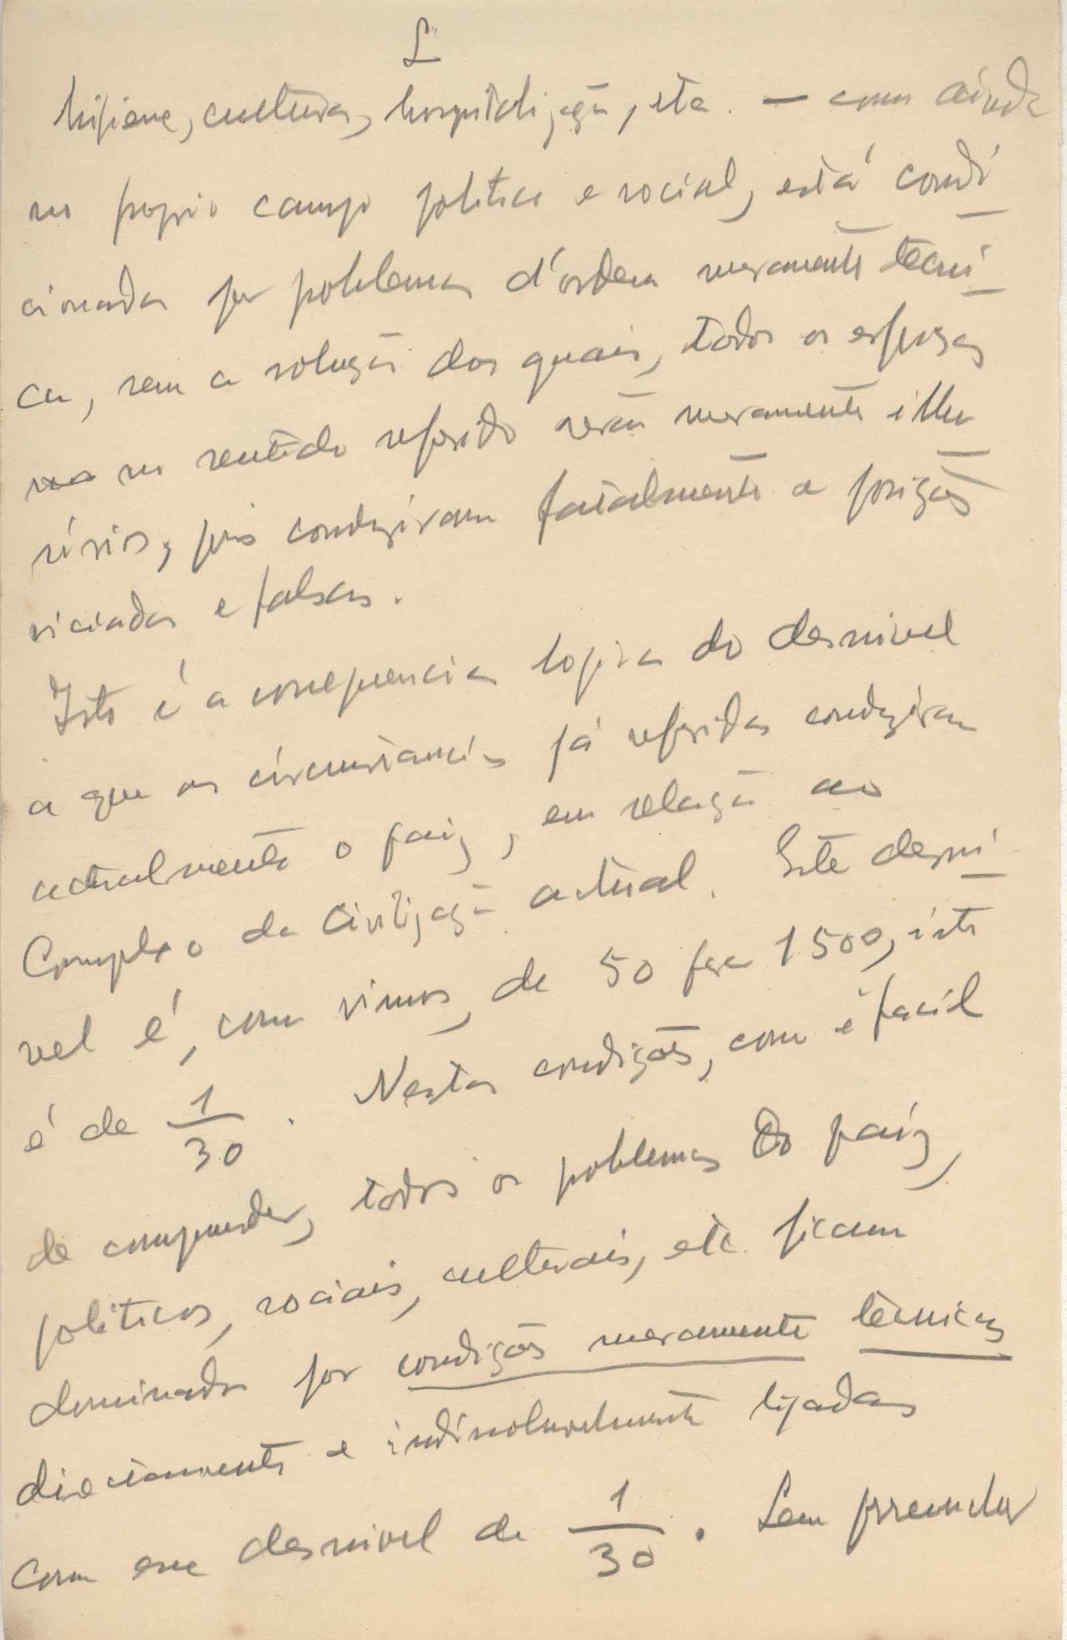 L
higiene, cultura, hospitalização, etc. — como ainda
no proprio campo politico e social, está condi
cionada por poblemas d'ordem meramente técni
ca, sem a solução dos quais, todos os esforços
no sentido referido serão meramente illu
sórios, pois conduziram fatalmente a posições
viciadas e falsas.
Isto é a consequencia logica do desnivel
a que as circunstancias já referidas conduziram
actualmente o paiz, em relação ao
Complexo da Civilização actual. Este desni
vel é, como vimos, de 50 para 1500, isto
é de 1/30. Nestas condições, como é facil
de compreender, todos os poblemas do paiz,
politicos, sociais, culturais, etc. ficam
dominados por condições meramente tècnicas
directamente e indissoluvelmente ligadas
com esse desnivel de 1/30. Sem